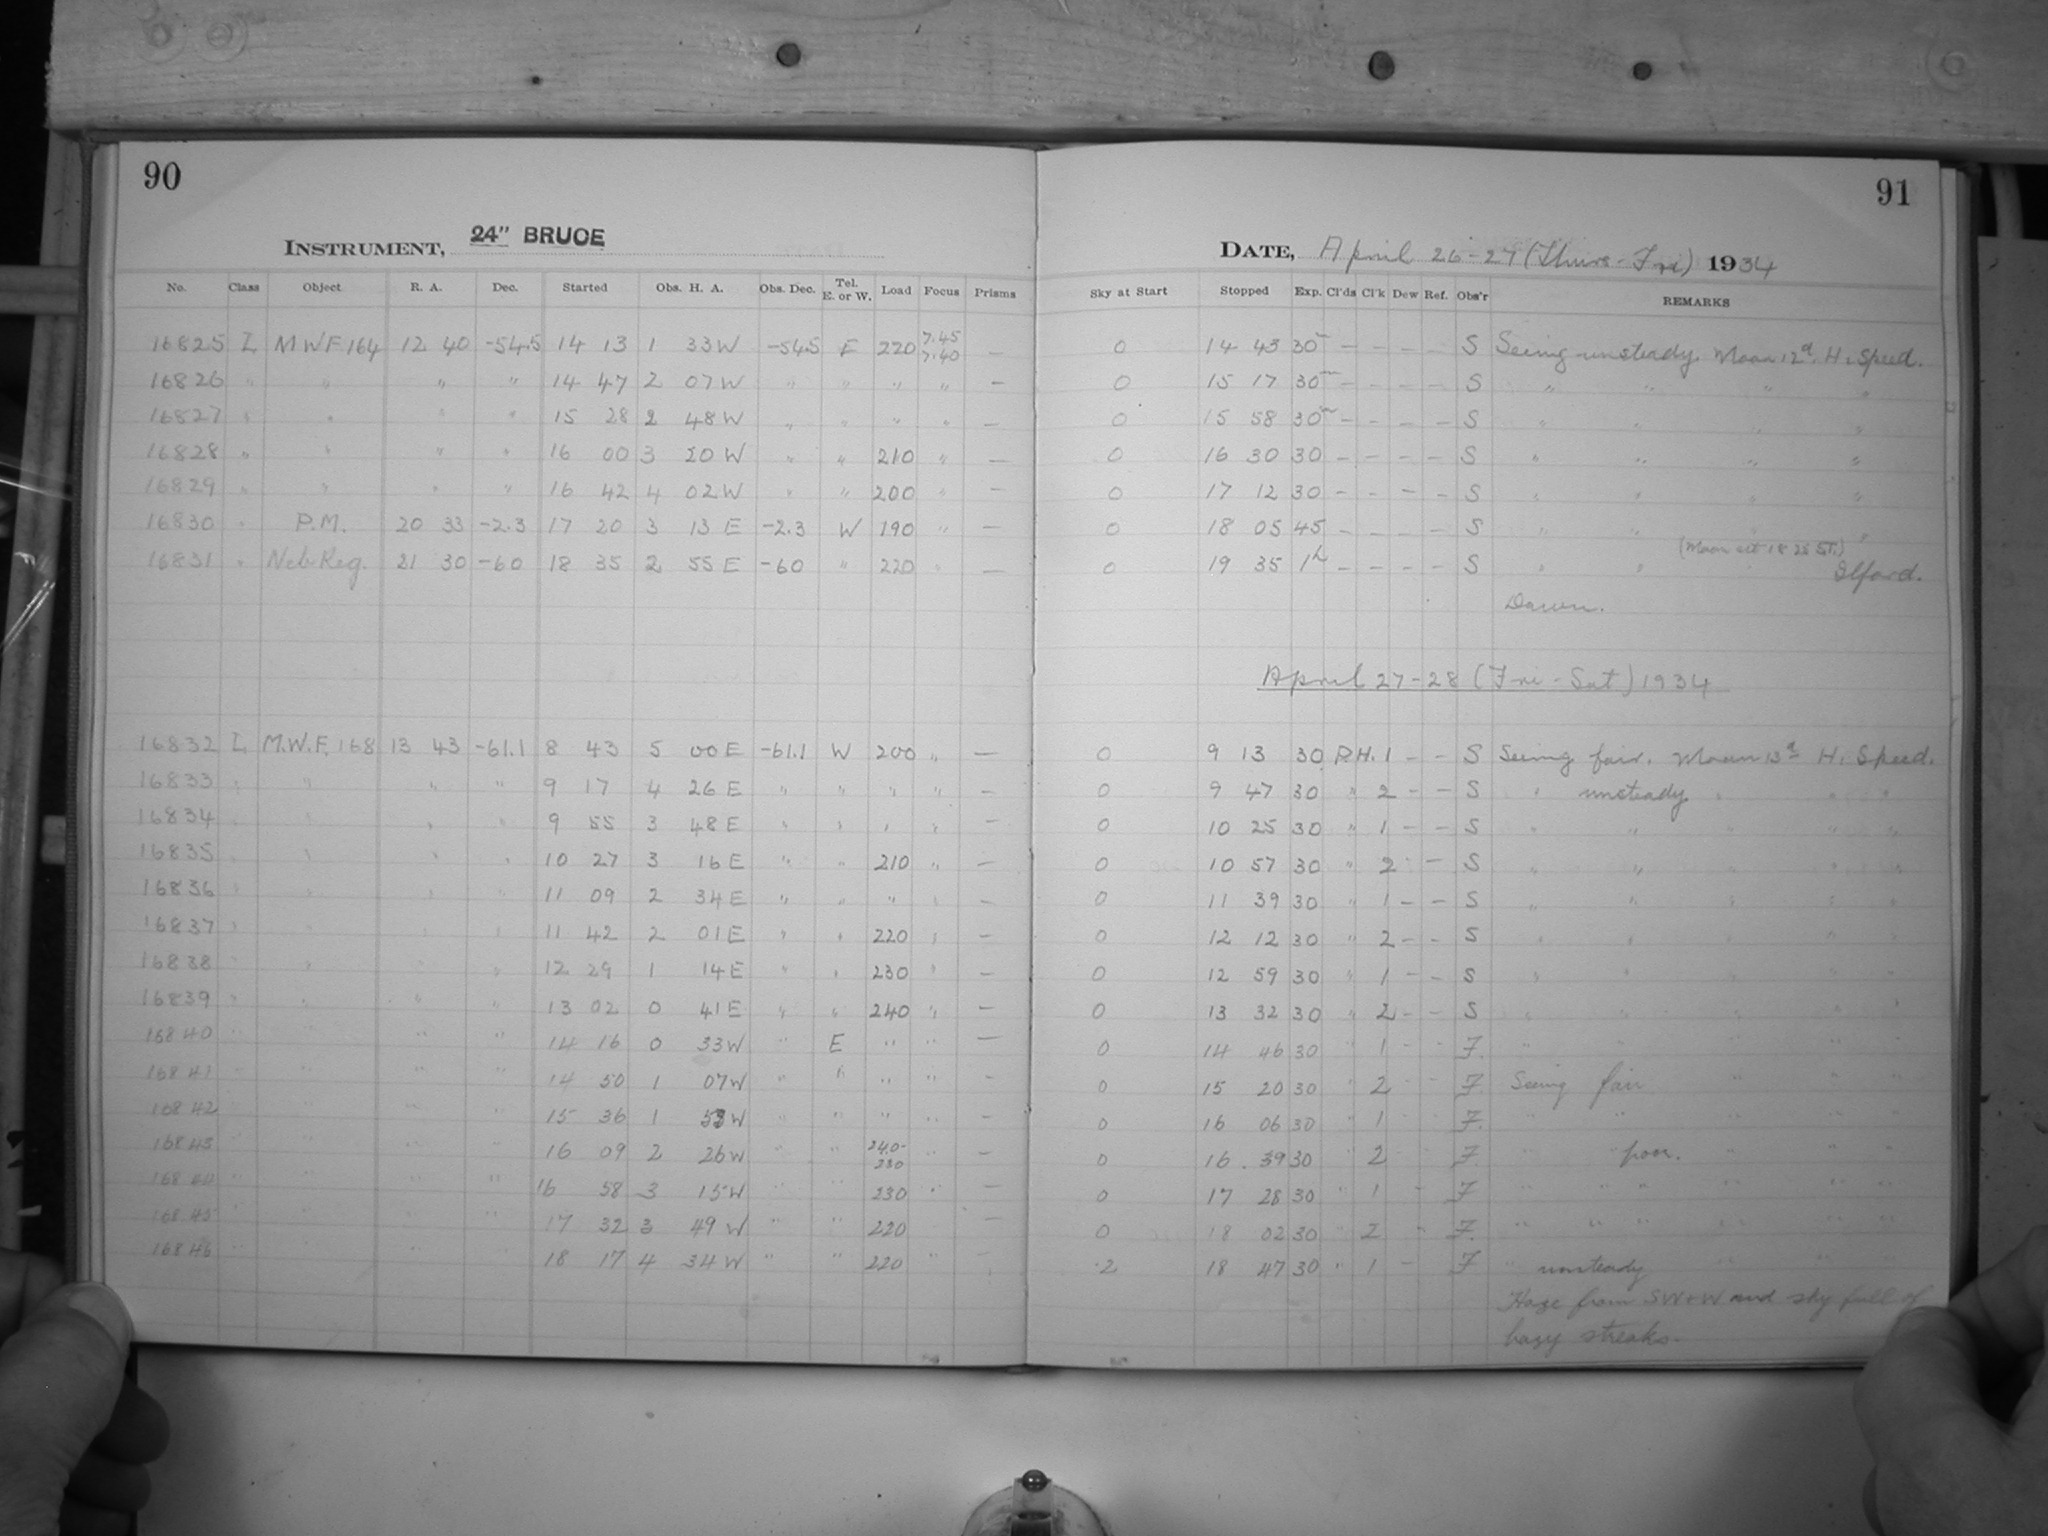 90
INSTRUMENT, 24" BRUCE
No. Class Object R. A. Dec. Started Obs. H. A. Obs. Dec. Tel. E. or W. Load Focus Prisms
16825 I, MWF 164 12 40 -54.5 14 13 1 33W -54.5 E 220 7.45 7.40 —
16826 " " " " 14 47 2 07W " " " " —
16827 " " " " 15 28 2 48W " " " " —
16828 " " " " 16 00 3 20W " " 210 " —
16829 " " " " 16 42 4 02W " " 200 " —
16830 " P.M. 20 33 -2.3 17 20 3 13 E -2.3 W 190 " —
16831 " Neb. Reg. 21 30 -60 18 35 2 55 E -60 " 220 " —
16832 I, M.W.F. 168 13 43 -61.1 8 43 5 00 E -61.1 W 200 " —
16833 " " " " 9 17 4 26 E " " " " —
16834 " " " " 9 55 3 48 E " " " " —
16835 " " " " 10 27 3 16 E " " 210 " —
16836 " " " " 11 09 2 34 E " " " " —
16837 " " " " 11 42 2 01 E " " 220 " —
16838 " " " " 12 29 1 14 E " " 230 " —
16839 " " " " 13 02 0 41 E " " 240 " —
16840 " " " " 14 16 0 33W " E " " —
16841 " " " " 14 50 1 07W " " " " —
16842 " " " " 15 36 1 53W " " " " —
16843 " " " " 16 09 2 26W " " 240-230 " —
16844 " " " " 16 58 3 15W " " 230 " —
16845 " " " " 17 32 3 49W " " 220 —
16846 " " " " 18 17 4 34W " " 220 " —
91
DATE, April 26-27 (Thurs-Fri) 1934
Sky at Start Stopped Exp. Cl'ds Cl'k Dew Ref. Obs'r REMARKS
0 14 43 30m — — — — S Seeing unsteady. Moon 12d. H. Speed.
0 15 17 30m — — — — S " " " "
0 15 58 30m — — — — S " " " "
0 16 30 30 — — — — S " " " "
0 17 12 30 — — — — S " " " "
0 18 05 45 — — — — S " " " "
(Moon set 18 25 ST.)
0 19 35 1h — — — — S " " Ilford.
Dawn.
April 27-28 (Fri-Sat) 1934
0 9 13 30 R.H. 1 — — S Seeing fair. Moon 13d H. Speed.
0 9 47 30 " 2 — — S " unsteady " " "
0 10 25 30 " 1 — — S " " " " "
0 10 57 30 " 2 — S " " " " "
0 11 39 30 " 1 — — S " " " " "
0 12 12 30 " 2 — — S " " " " "
0 12 59 30 " 1 — — S " " " " "
0 13 32 30 " 2 — — S " " " " "
0 14 46 30 " 1 " " F. " " " " "
0 15 20 30 " 2 " " F. Seeing fair " " "
0 16 06 30 " 1 " " F. " " " " "
0 16 39 30 " 2 " " F. " poor. " " "
0 17 28 30 " 1 — " F " " " " "
0 18 02 30 " 2 " " F. " " " " "
2 18 47 30 " 1 — " F " unsteady " " "
Haze from SW+W and sky full of
hazy streaks.